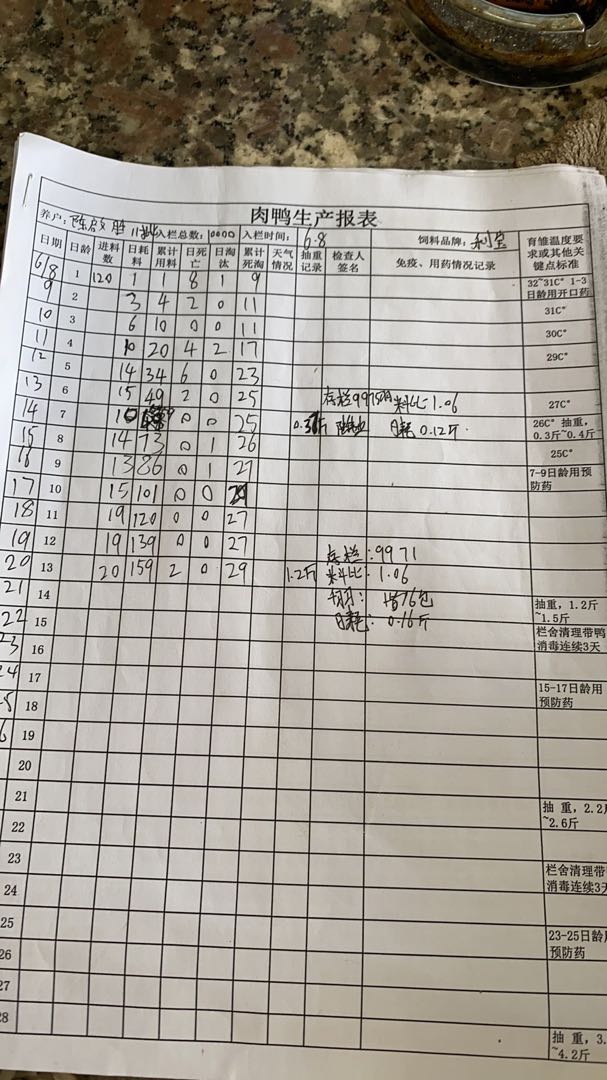 肉鸭生产报表
养户: 陈 胜 入栏总数: 10000 入栏时间: 6.8 饲料品牌: 利宝
日期 日龄 进料数 日耗料 累计用料 日死亡 日淘汰 累计死淘 天气情况 抽重记录 检查人签名 免疫、用药情况记录 育雏温度要求或其他关键点标准
6/8 1 120 1 1 8 1 9 32~31C° 1-3日龄用开口药
9 2 3 4 2 0 11 31C°
10 3 6 10 0 0 11 30C°
11 4 10 20 4 2 17 29C°
12 5 14 34 6 0 23
13 6 15 49 2 0 25 存栏9975 料比:1.06 27C°
14 7 10 0 0 25 日耗 0.12斤 26C° 抽重,0.3斤~0.4斤
15 8 14 73 0 1 26 25C°
16 9 13 86 0 1 27 7-9日龄用预防药
17 10 15 101 0 0
18 11 19 120 0 0 27
19 12 19 139 0 0 27 存栏:9971
20 13 20 159 2 0 29 1.2斤 料比:1.06
21 14 76包 抽重,1.2斤~1.5斤
22 15 日耗:0.16斤 栏舍清理带鸭消毒连续3天
23 16
24 17 15-17日龄用预防药
18
19
20
21 抽 重,2.2斤~2.6斤
22
23 栏舍清理带
24 消毒连续3天
25 23-25日龄用预防药
26
27
28 抽 重,3.
~4.2斤